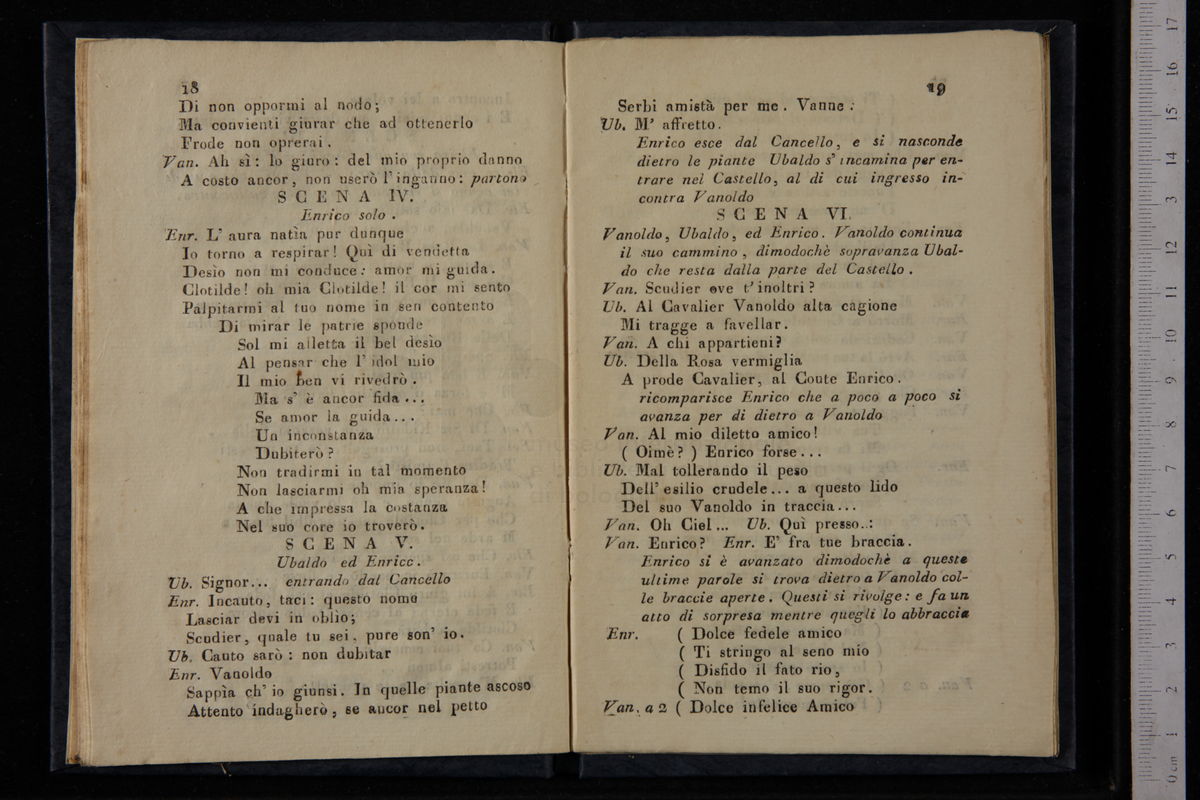 18
Di non oppormi al nodo;
Ma convienti giurar che ad ottenerlo
Frode non oprerai.
Van. Ah sì: lo giuro: del mio proprio danno
A costo ancor, non userò l'inganno: partono
SCENA IV.
Enrico solo.
Enr. L'aura natìa pur dunque
Io torno a respirar! Quì di vendetta
Desìo non mi conduce: amor mi guida.
Clotilde! oh mia Clotilde! il cor mi sento
Palpitarmi al tuo nome in sen contento
Di mirar le patrie sponde
Sol mi alletta il bel desìo
Al pensar che l'idol mio
Il mio ben vi rivedrò.
Ma s'è ancor fida...
Se amor la guida...
Un inconstanza
Dubiterò?
Non tradirmi in tal momento
Non lasciarmi oh mia speranza!
A che impressa la costanza
Nel suo core io troverò.
SCENA V.
Ubaldo ed Enrico.
Ub. Signor... entrando dal Cancello
Enr. Incauto, taci: questo nome
Lasciar devi in oblìo;
Scudier, quale tu sei, pure son' io.
Ub. Cauto sarò: non dubitar
Enr. Vanoldo
Sappia ch'io giunsi. In quelle piante ascoso
Attento indagherò, se ancor nel petto
19
Serbi amistà per me. Vanne:
Ub. M'affretto.
Enrico esce dal Cancello, e si nasconde
dietro le piante Ubaldo s'incamina per en-
trare nel Castello, al di cui ingresso in-
contra Vanoldo
SCENA VI.
Vanoldo, Ubaldo, ed Enrico. Vanoldo continua
il suo cammino, dimodochè sopravanza Ubal-
do che resta dalla parte del Castello.
Van. Scudier ove t'inoltri?
Ub. Al Cavalier Vanoldo alta cagione
Mi tragge a favellar.
Van. A chi appartieni?
Ub. Della Rosa vermiglia
A prode Cavalier, al Conte Enrico.
ricomparisce Enrico che a poco a poco si
avanza per di dietro a Vanoldo
Van. Al mio diletto amico!
( Oimè? ) Enrico forse...
Ub. Mal tollerando il peso
Dell'esilio crudele... a questo lido
Del suo Vanoldo in traccia...
Van. Oh Ciel... Ub. Quì presso..:
Van. Enrico? Enr. E' fra tue braccia.
Enrico si è avanzato dimodochè a queste
ultime parole si trova dietro a Vanoldo col-
le braccie aperte. Questi si rivolge: e fa un
atto di sorpresa mentre quegli lo abbraccia
Enr. ( Dolce fedele amico
( Ti stringo al seno mio
( Disfido il fato rio,
( Non temo il suo rigor.
Van. a 2 ( Dolce infelice Amico